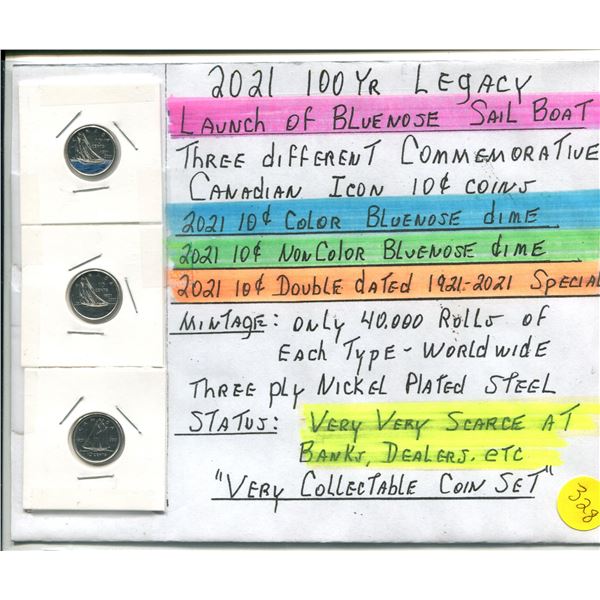 2021 100 Yr Legacy
Launch of Bluenose Sail Boat
Three different Commemorative
Canadian Icon 10¢ coins
2021 10¢ Color Bluenose dime
2021 10¢ NonColor Bluenose dime
2021 10¢ Double dated 1921-2021 Special
Mintage: only 40.000 Rolls of
Each Type - Worldwide
Three ply Nickel Plated Steel
Status: Very Very Scarce at
Banks, Dealers. etc
"Very Collectable Coin Set"
328